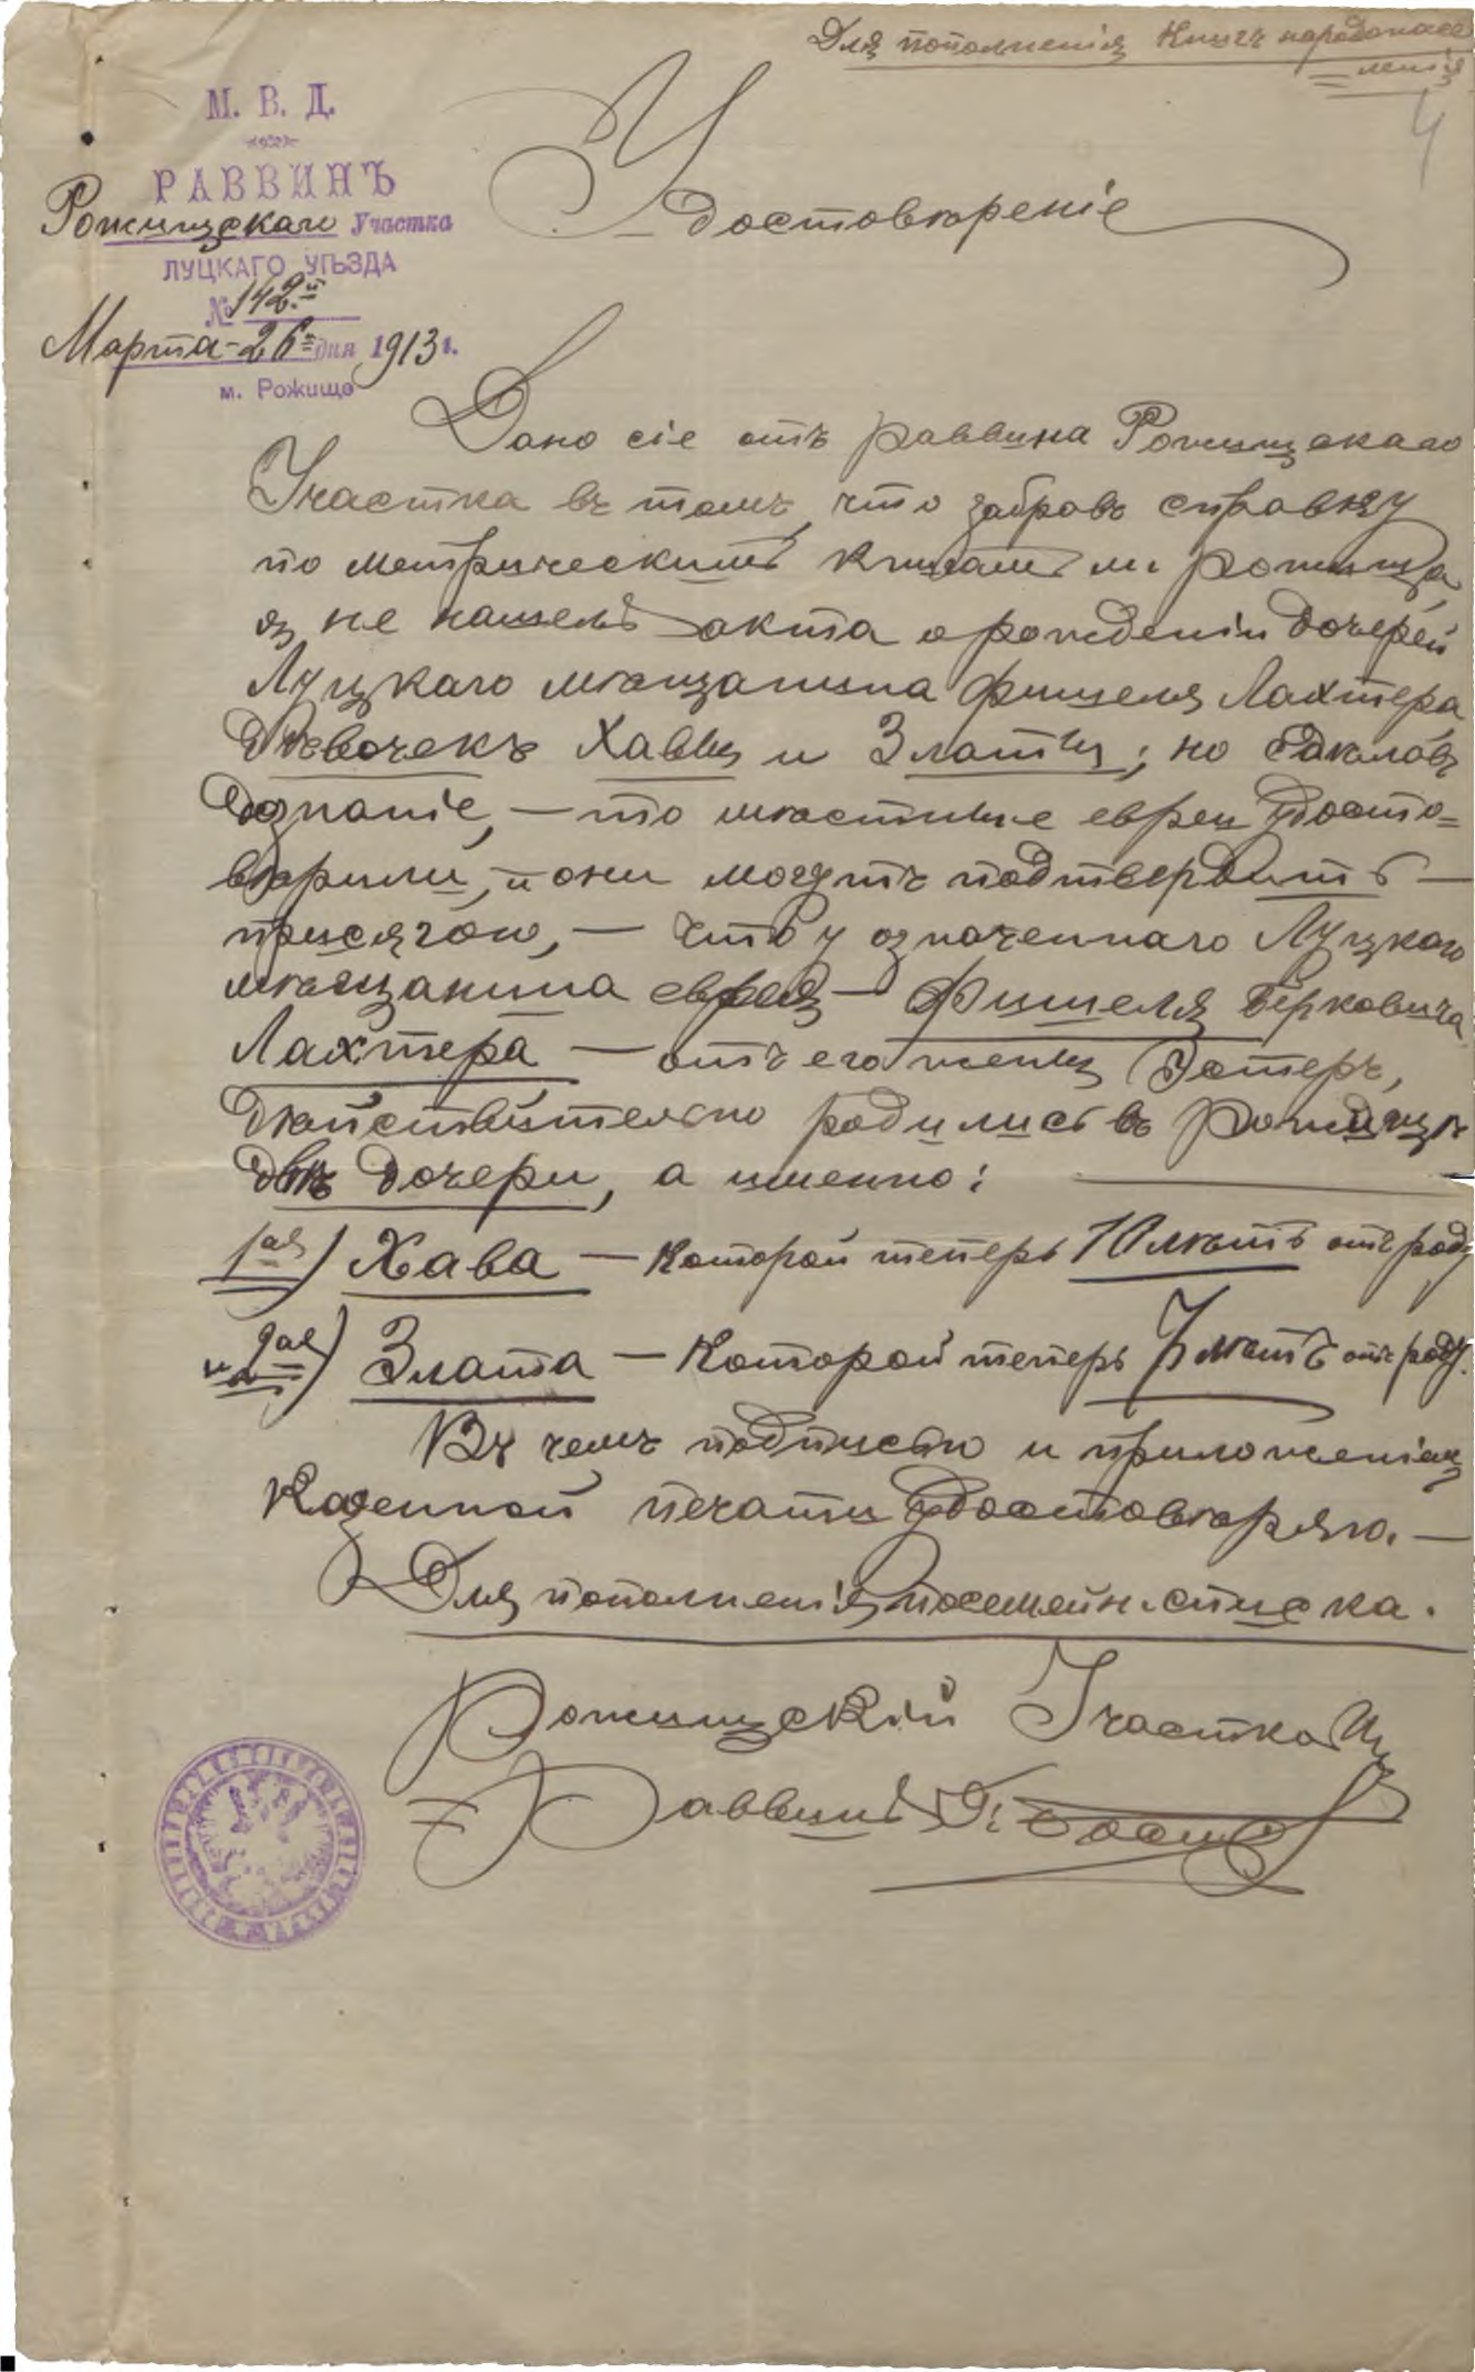 Для пополненія Книгъ народонасе
ленія
4
М. В. Д.
РАВВИНЪ
Рожищскаго Участка
ЛУЦКАГО УѢЗДА
№ 142.й
Марта - 26 дня 1913 г.
м. Рожище
Удостовѣреніе
Дано сіе отъ раввина Рожищскаго
Участка въ томъ, что забравъ справку
по метрическимъ книгамъ м. Рожища,
я не нашелъ акта о рожденіи дочерей
Луцкаго мѣщанина Фишеля Лахтера,
дѣвочекъ Хавы и Златы; но
дознаніе, — то мѣстные евреи удосто=
вѣрили, и они могутъ подтвердить —
присягою, — что у означеннаго Луцкаго
мѣщанина еврея — Фишеля Берковича
Лахтера — отъ его жены Эстеръ,
дѣйствительно родились въ Рожищѣ
двѣ дочери, а именно:
1ая) Хава — которой теперь 10 лѣтъ отъ роду
и 2ая) Злата — которой теперь 7 лѣтъ отъ роду.
Въ чемъ подписью и приложеніемъ
казенной печати удостовѣряю. —
Для пополненія посемейн. списка.
Рожищскій Участковый
Раввинъ